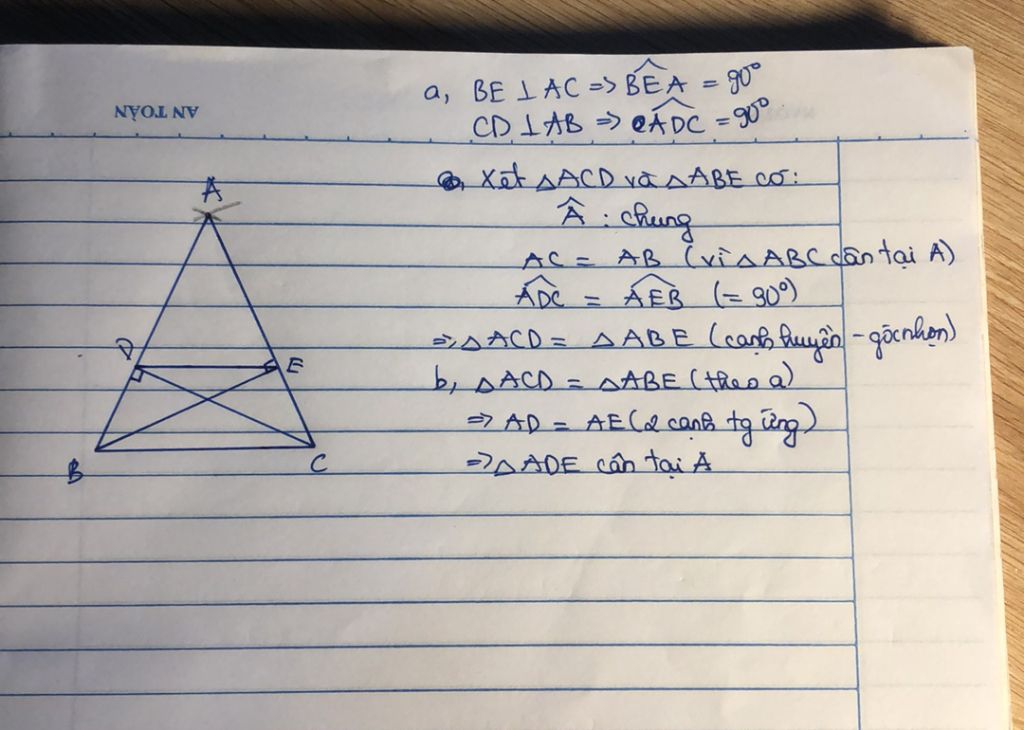 AN TOÀN
a, BE ⊥ AC => \widehat{BEA} = 90°
CD ⊥ AB => \widehat{ADC} = 90°
Xét △ACD và △ABE có:
\widehat{A} : chung
AC = AB (vì △ABC cân tại A)
\widehat{ADC} = \widehat{AEB} (= 90°)
=> △ACD = △ABE (cạnh huyền - góc nhọn)
b, △ACD = △ABE (theo a)
=> AD = AE (2 cạnh tg ứng)
=> △ADE cân tại A
A
D
E
B
C